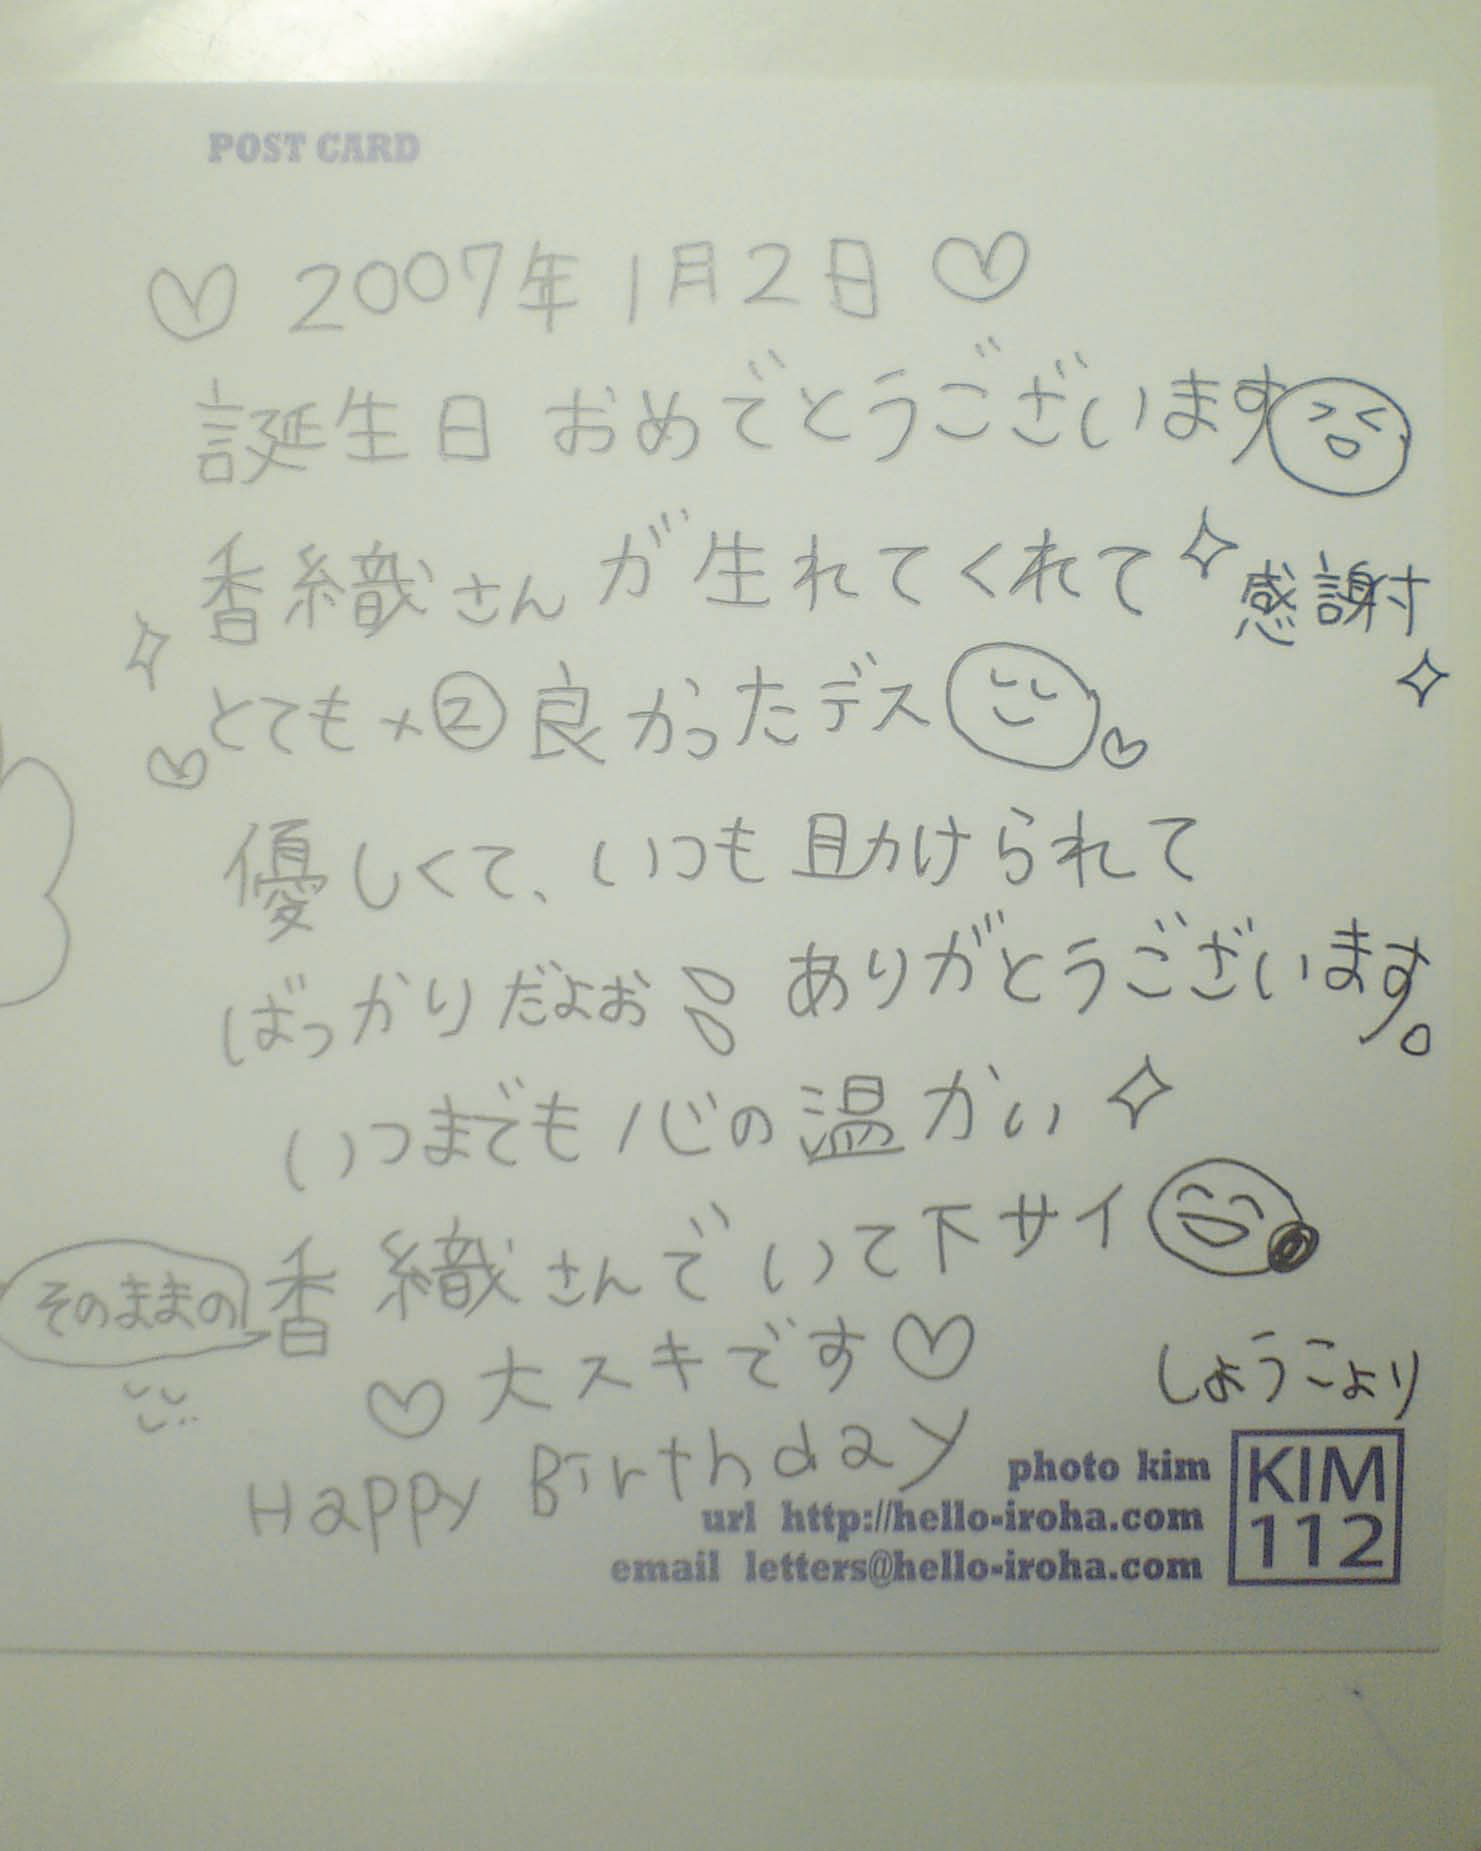 POST CARD
♡ 2007年1月2日 ♡
誕生日おめでとうございます
香織さんが生れてくれて 感謝
とても×②良かったデス
優しくて、いつも助けられて
ばっかりだよぉ ありがとうございます。
いつまでも心の温かい
そのままの 香織さんでいて下サイ
♡大スキです♡
しょうこより
Happy Birthday
photo kim
url http://hello-iroha.com
email letters@hello-iroha.com
KIM
112